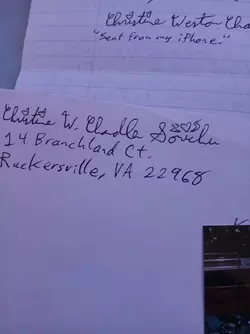 Christine Weston Cha
"Sent from my iPhone."
Christine W. Chadle
14 Branchland Ct.
Ruckersville, VA 22968